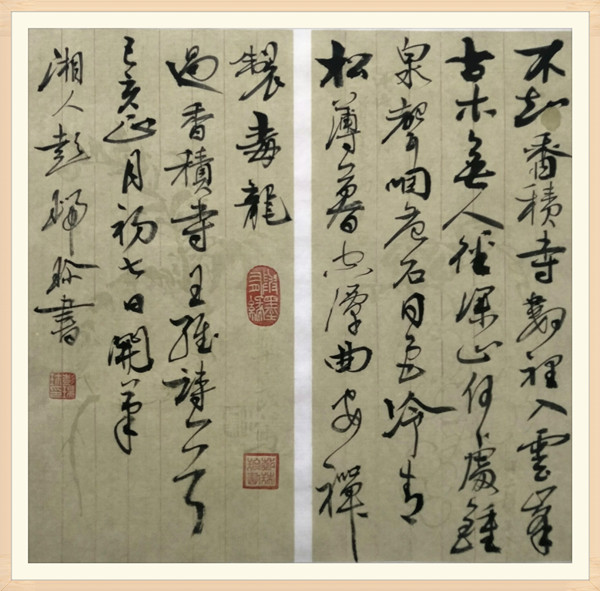 不知香積寺數裡入雲峯
古木無人徑深山何處鍾
泉聲咽危石日色冷青
松薄暮空潭曲安禪
製毒龍
過香積寺王維詩一首
己亥正月初七日開筆
湘人彭書